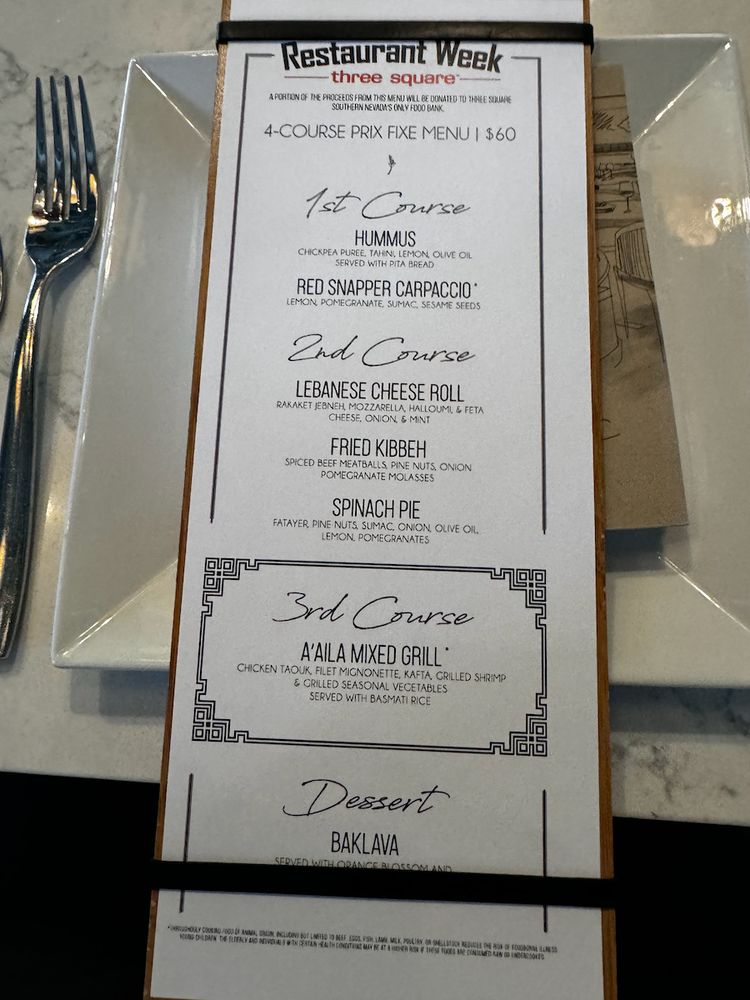 Restaurant Week
three square
A PORTION OF THE PROCEEDS FROM THIS MENU WILL BE DONATED TO THREE SQUARE
SOUTHERN NEVADA'S ONLY FOOD BANK.
4-COURSE PRIX FIXE MENU | $60
1st Course
HUMMUS
CHICKPEA PUREE, TAHINI, LEMON, OLIVE OIL
SERVED WITH PITA BREAD
RED SNAPPER CARPACCIO*
LEMON, POMEGRANATE, SUMAC, SESAME SEEDS
2nd Course
LEBANESE CHEESE ROLL
RAKAKET JEBNEH, MOZZARELLA, HALLOUMI, & FETA
CHEESE, ONION, & MINT
FRIED KIBBEH
SPICED BEEF MEATBALLS, PINE NUTS, ONION
POMEGRANATE MOLASSES
SPINACH PIE
FATAYER, PINE NUTS, SUMAC, ONION, OLIVE OIL,
LEMON, POMEGRANATES
3rd Course
A'AILA MIXED GRILL*
CHICKEN TAOUK, FILET MIGNONETTE, KAFTA, GRILLED SHRIMP
& GRILLED SEASONAL VEGETABLES
SERVED WITH BASMATI RICE
Dessert
BAKLAVA
SERVED WITH ORANGE BLOSSOM AND
*THOROUGHLY COOKING FOOD OF ANIMAL ORIGIN, INCLUDING BUT LIMITED TO BEEF, EGGS, FISH, LAMB, MILK, POULTRY, OR SHELLSTOCK REDUCES THE RISK OF FOODBORNE ILLNESS
YOUNG CHILDREN, THE ELDERLY AND INDIVIDUALS WITH CERTAIN HEALTH CONDITIONS MAY BE AT A HIGHER RISK IF THESE FOODS ARE CONSUMED RAW OR UNDERCOOKED.